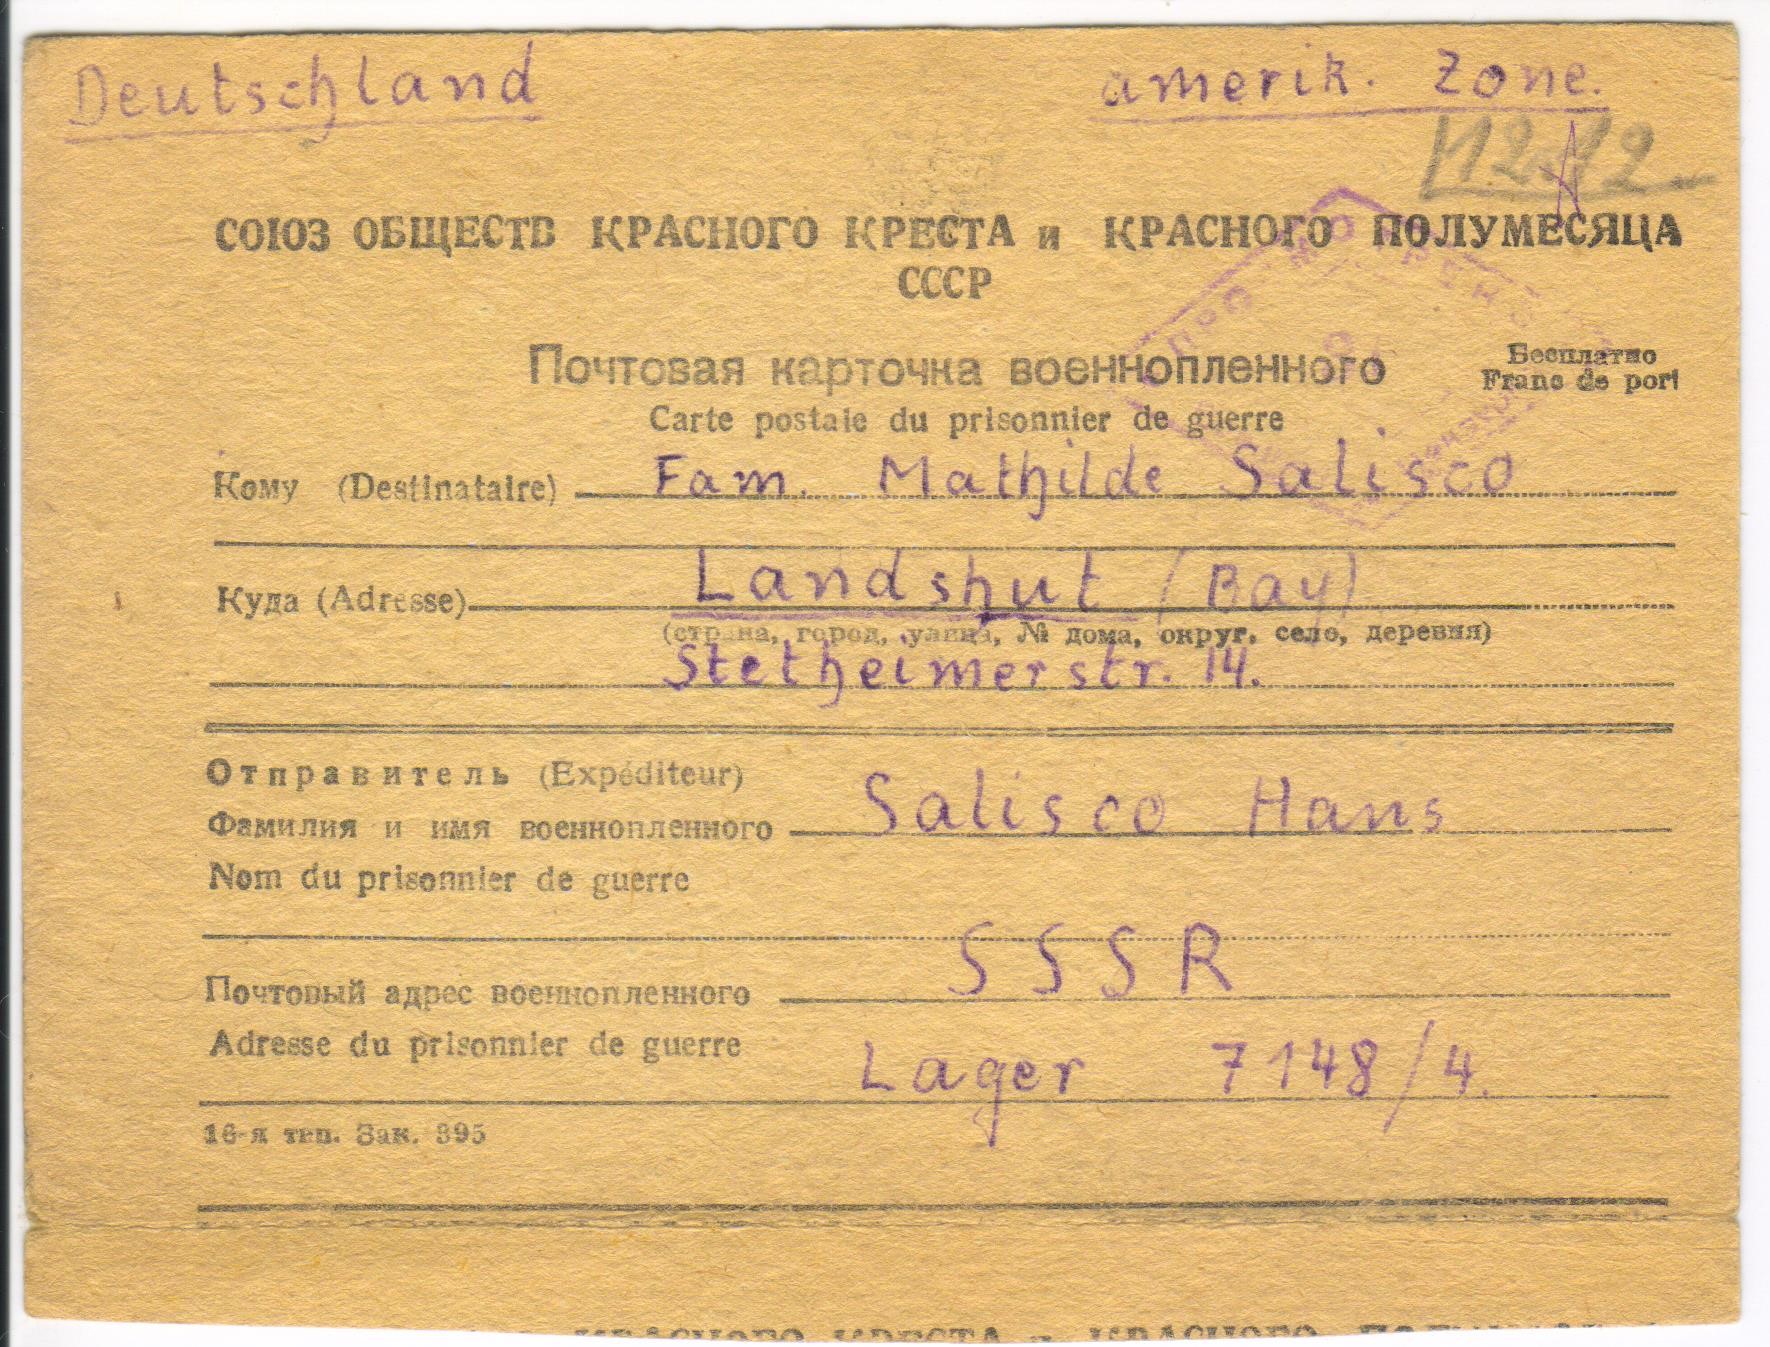 Deutschland amerik. Zone.
12.12
СОЮЗ ОБЩЕСТВ КРАСНОГО КРЕСТА и КРАСНОГО ПОЛУМЕСЯЦА
СССР
Почтовая карточка военнопленного
Бесплатно
Franc de port
Carte postale du prisonnier de guerre
Кому (Destinataire) Fam. Mathilde Salisco
Куда (Adresse) Landshut (Bay)
(страна, город, улица, № дома, округ, село, деревня)
Stetheimerstr. 14.
Отправитель (Expéditeur)
Фамилия и имя военнопленного Salisco Hans
Nom du prisonnier de guerre
SSSR
Почтовый адрес военнопленного
Adresse du prisonnier de guerre
Lager 7148/4.
16-я тип. Зак. 395
КРАСНОГО КРЕСТА и КРАСНОГО